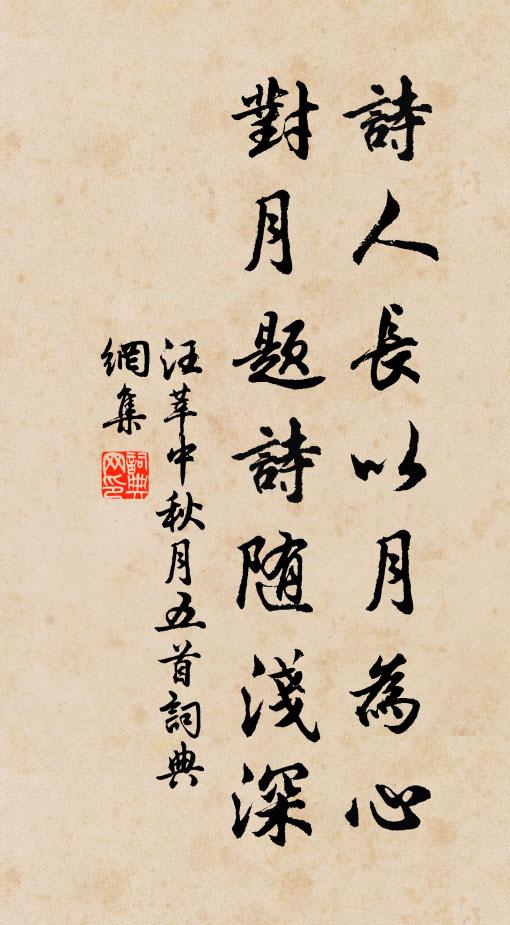 詩人長以月為心
對月題詩随淺深
汪莘中秋月五首詞典
網集
詞典網印